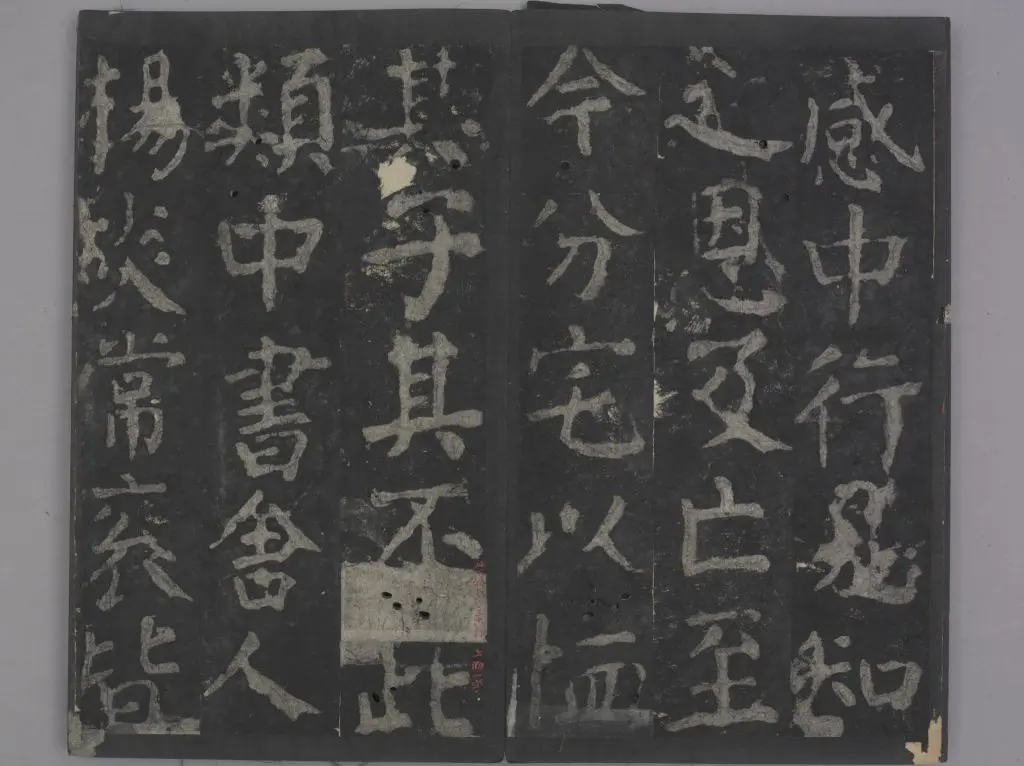 感中行見知
之恩及亡至
今分宅以恤
其子其不此
類中書舍人
楊炎常袞皆